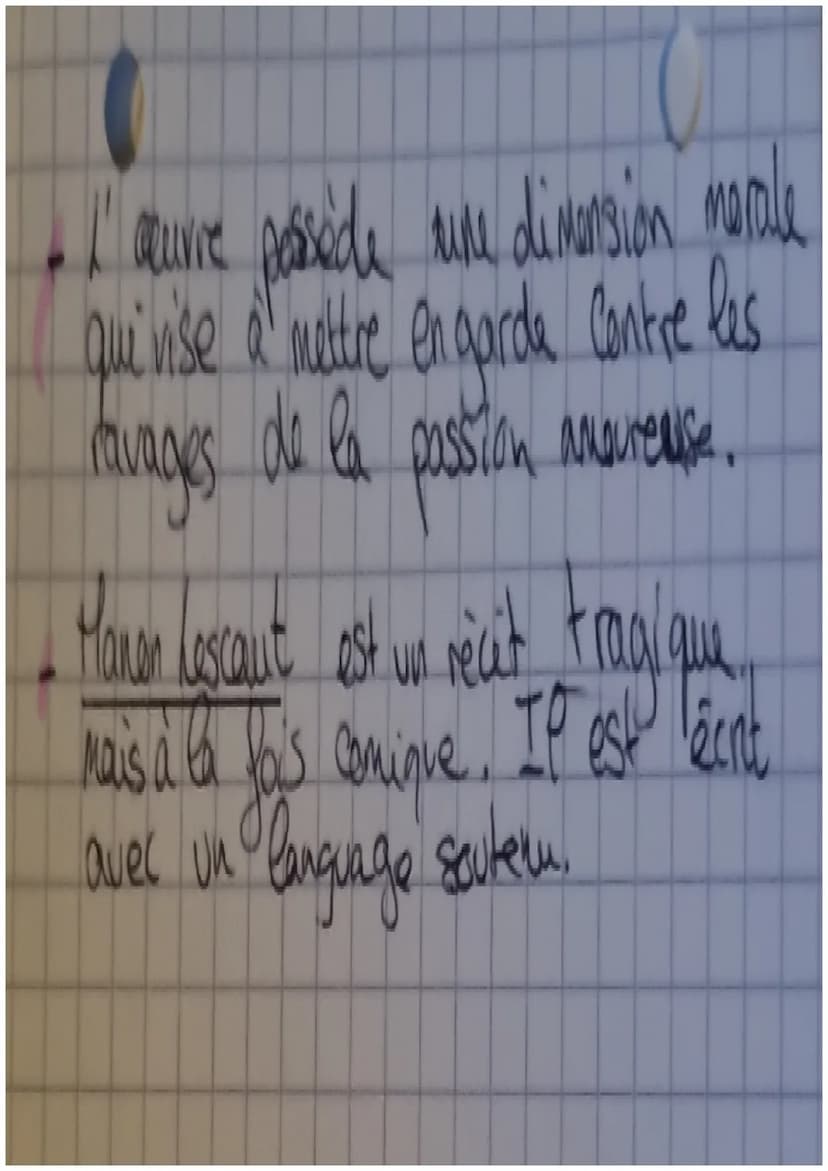 - L'œuvre possède une dimension morale
qui vise à mettre en garde contre les
ravages de la passion amoureuse.
- Manon Lescaut est un récit tragique
mais à la fois comique. Il est écrit
avec un language soutenu.